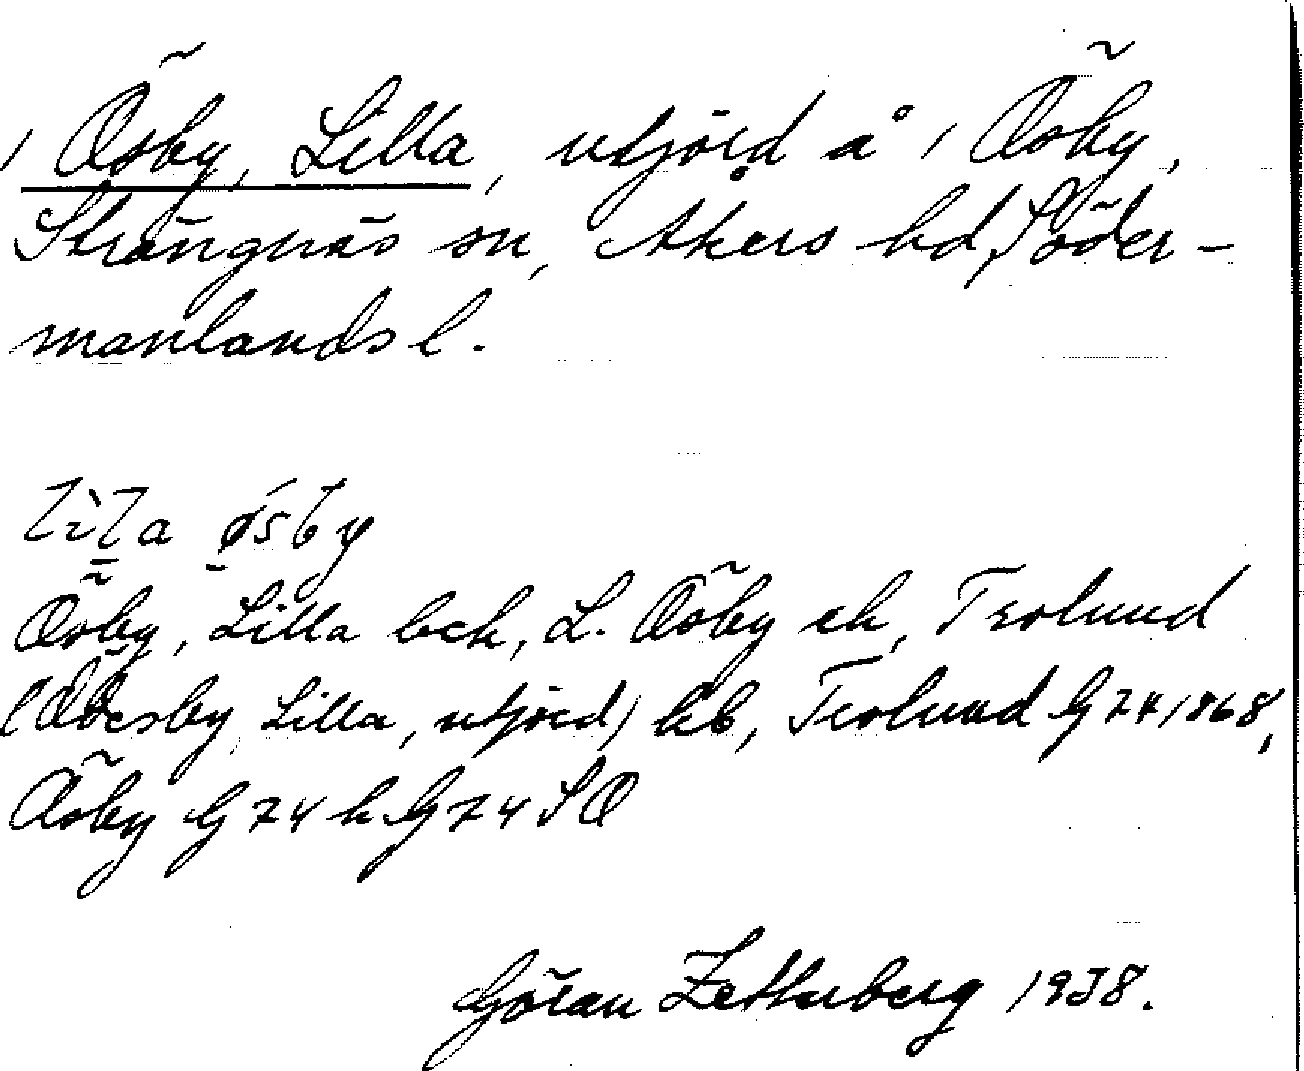 / Ösby, Lilla, utjord å / Ösby,
Strängnäs sn, Åkers hd, Söder-
manlands l.
lilla ösby
Ösby, Lilla bck, L. Ösby ek, Trolund
(Ödesby Lilla, utjord) kb, Trolund G 74 1868,
Ösby G 74 h. G 74 SO
Göran Zetterberg 1938.